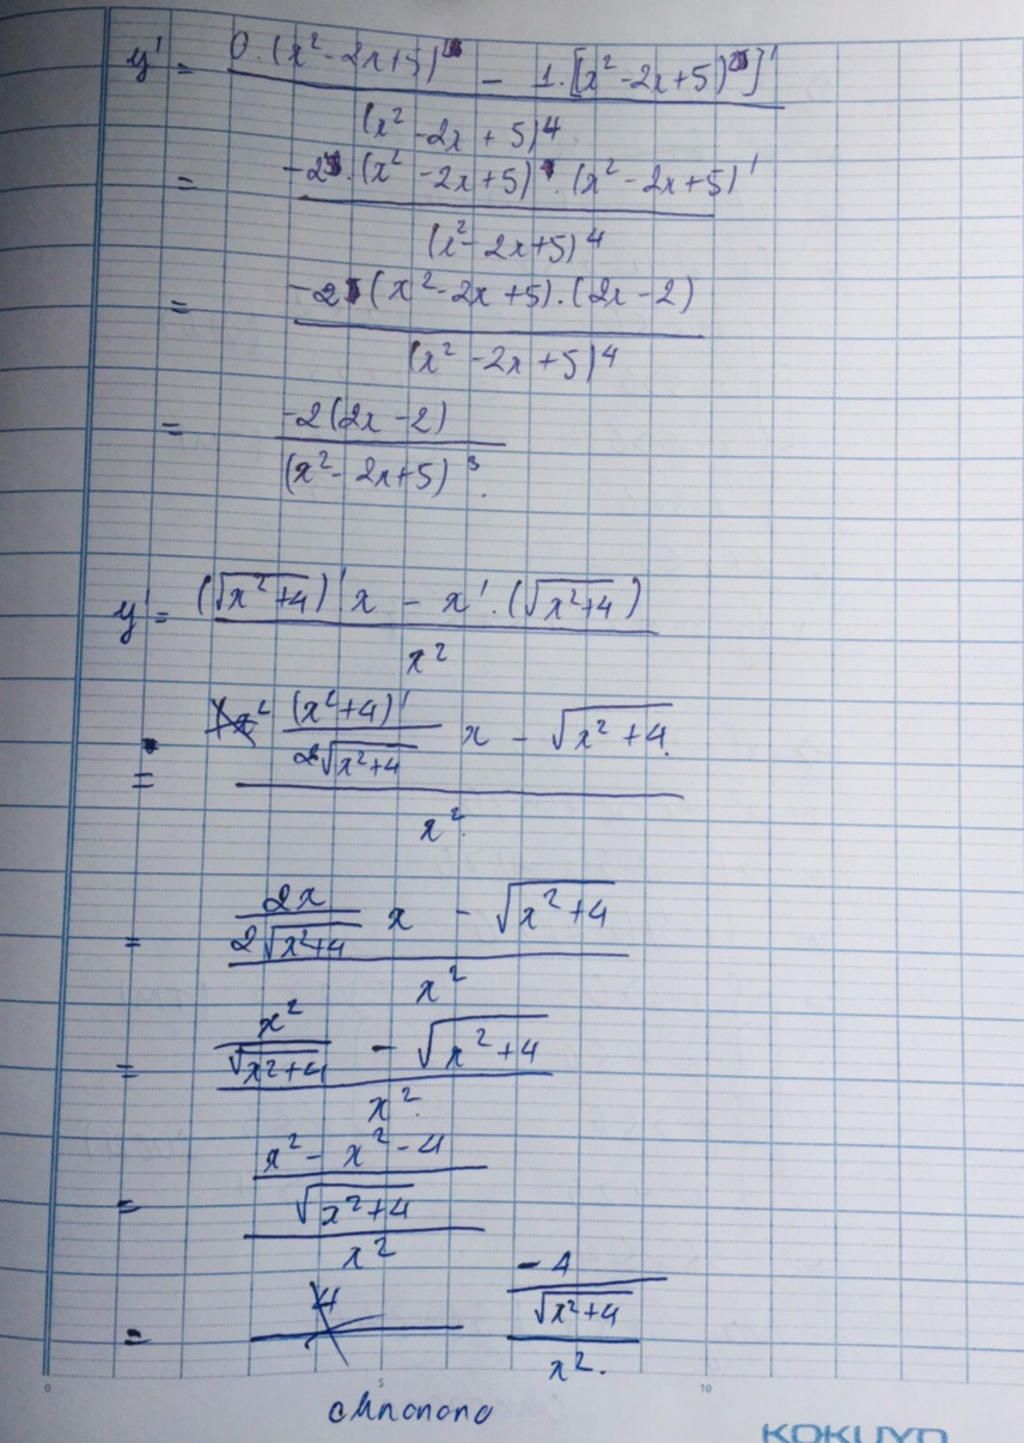 y' = 0.(x²-2x+5)² - 1.[(x²-2x+5)²]'
(x²-2x+5)4
= -2.(x²-2x+5).(x²-2x+5)'
(x²-2x+5)4
= -2(x²-2x+5).(2x-2)
(x²-2x+5)4
= -2(2x-2)
(x²-2x+5)³.
y' = (√x²+4)'x - x'.(√x²+4)
x²
(x²+4)'
2√x²+4 x - √x²+4
=
x²
2x
2√x²+4 x - √x²+4
=
x²
x²
√x²+4 - √x²+4
=
x²
x²-x²-4
√x²+4
=
x²
-4
√x²+4
=
x².
0 5 10
KOKUYO